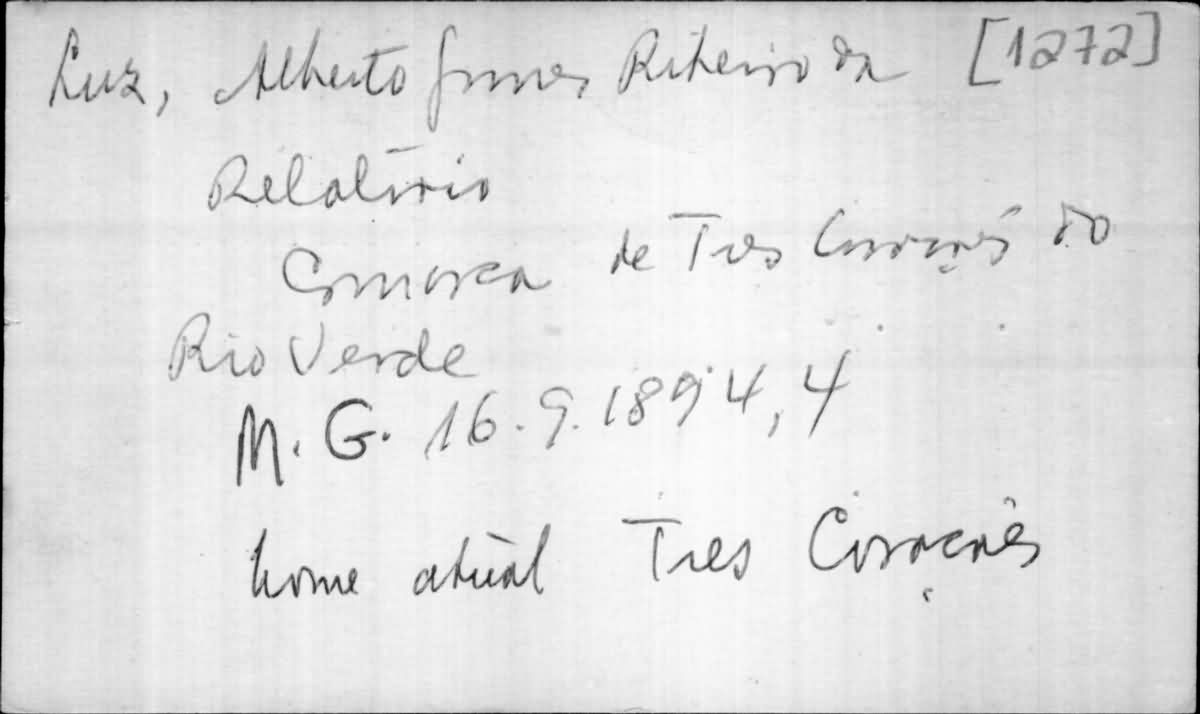 Luz, Alberto Gomes Ribeiro da [1272]
Relatório
Comarca de Tres Corações do
Rio Verde
M. G. 16.9.1894, 4
nome atual Tres Corações